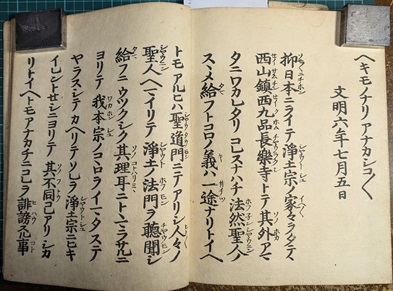 ヘキモノナリアナカシコ〳〵
文明六年七月五日
抑日本ニヲイテ浄土宗ノ家々ヲタテヽ
西山鎮西九品長樂寺トテ其外アマ
タニワカレタリコレスナハチ法然聖人ノ
スヽメ給フトコロノ義ハ一途ナリトイヘ
トモアルヒハ聖道門ニテアリシ人々ノ
聖人ヘマイリテ浄土ノ法門ヲ聽聞シ
給フニウツクシク其理耳ニトヽマラサルニ
ヨリテ我本宗ノコヽロヲイマタステ
ヤラスシテカヘリテソレヲ浄土宗ニヒキ
イレントセシニヨリテ其不同コレアリシカ
リトイヘトモアナカチニコレヲ誹謗スル事